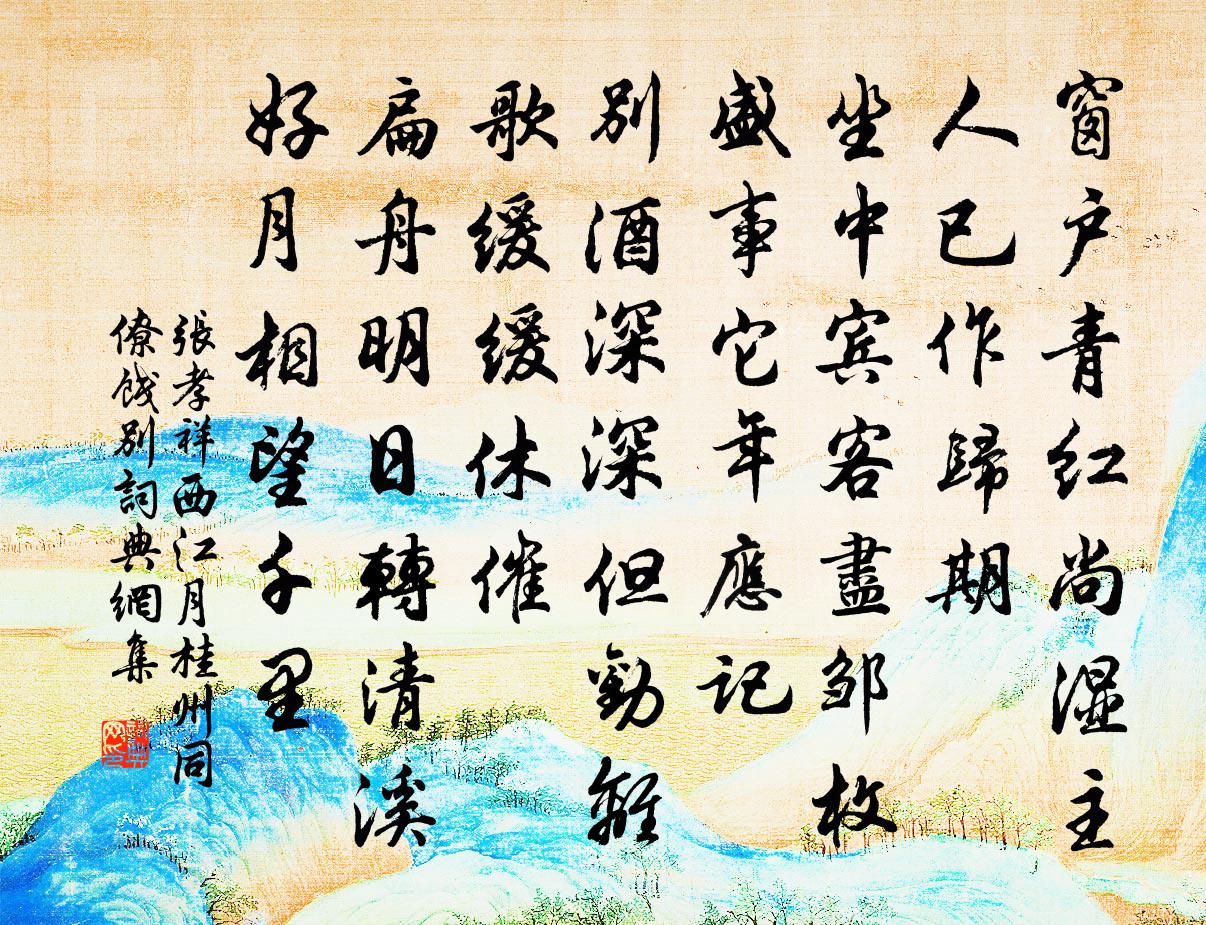 窗户青红尚湿主
人已作歸期
坐中宾客盡邹枚
盛事它年應记
别酒深深但勸離
歌缓缓休催
扁舟明日轉清溪
好月相望千里
張孝祥西江月桂州同
僚餞别詞典網集